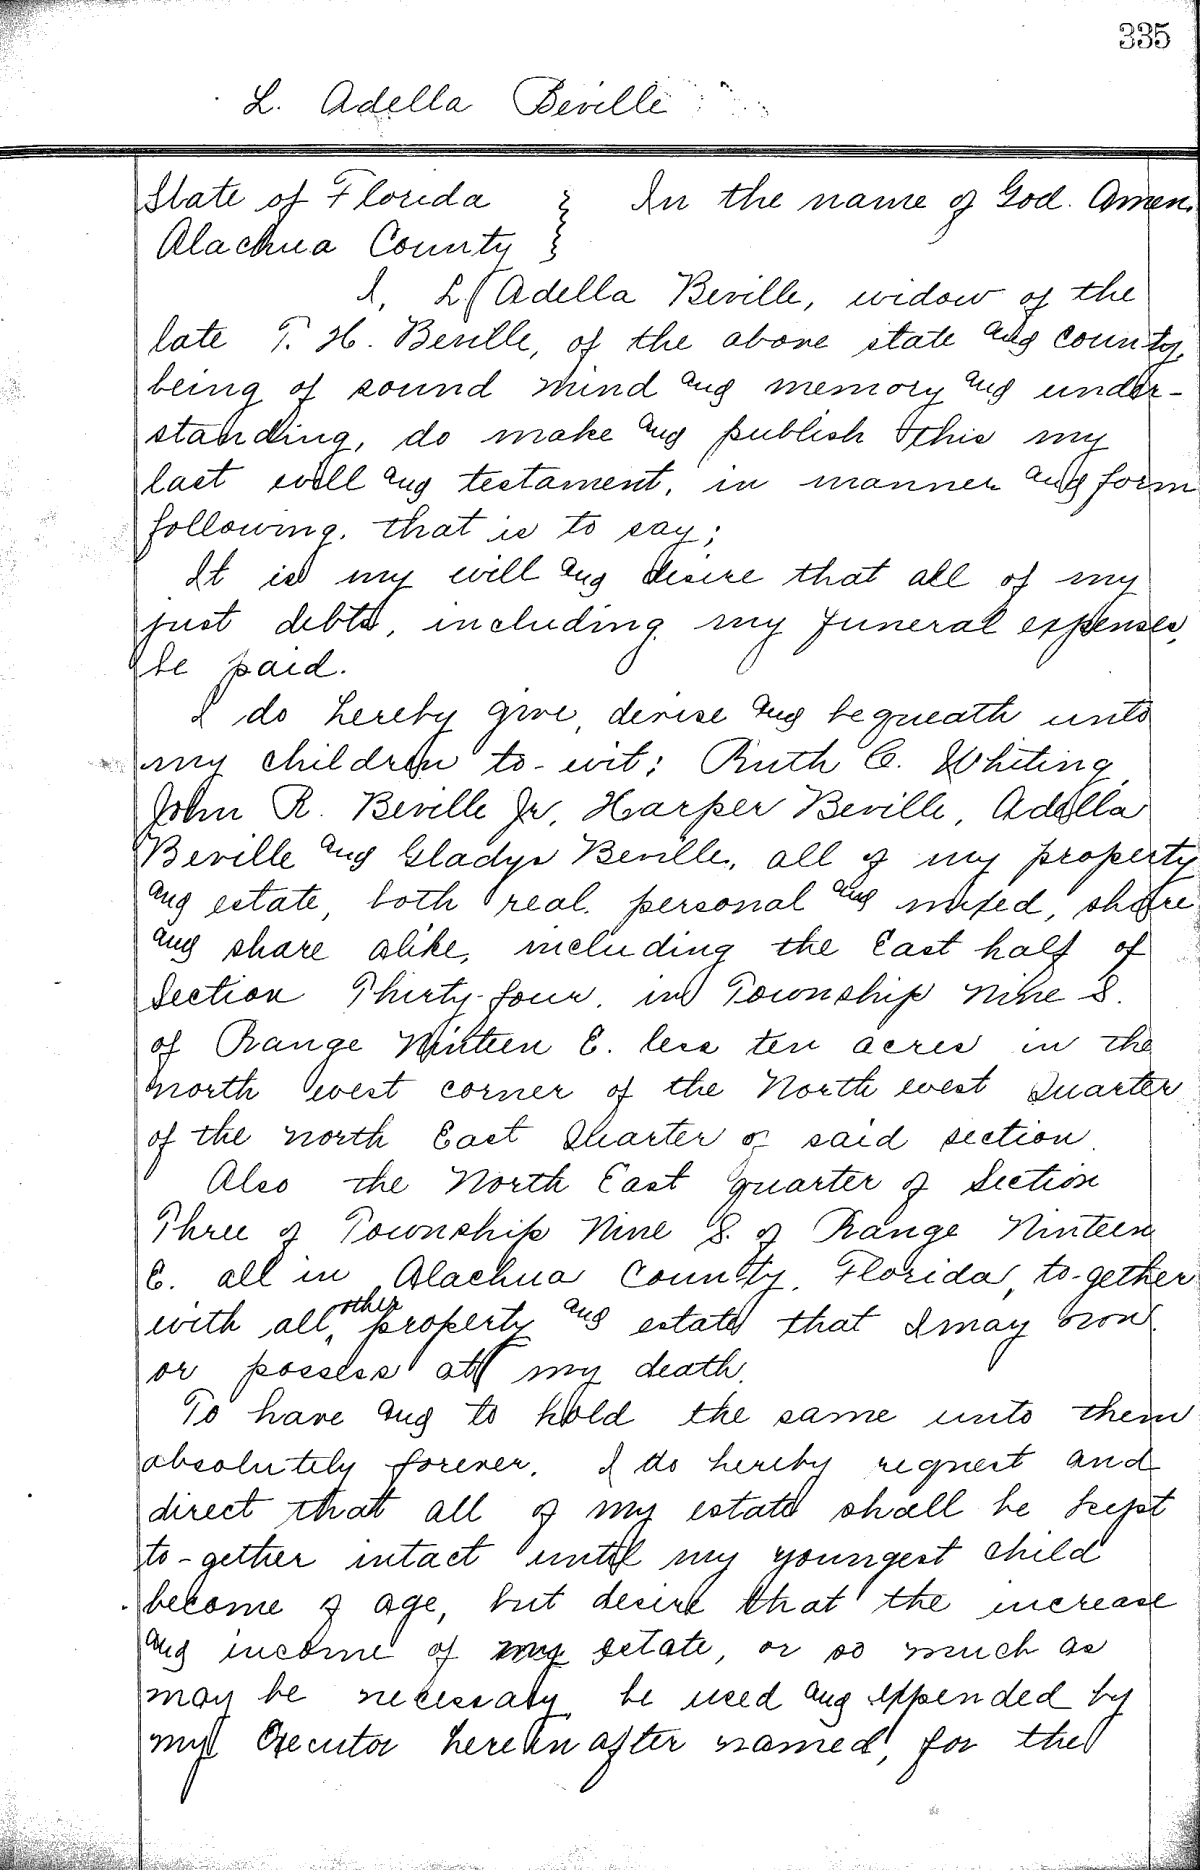 335
L. Adella Beville
State of Florida } In the name of God. Amen.
Alachua County }
I, L. Adella Beville, widow of the
late T. H. Beville, of the above state and county,
being of sound mind and memory and under-
standing, do make and publish this my
last will and testament, in manner and form
following, that is to say;
It is my will and desire that all of my
just debts, including my funeral expenses,
be paid.
I do hereby give, devise and bequeath unto
my children to-wit: Ruth C. Whiting,
John R. Beville Jr, Harper Beville, Adella
Beville and Gladys Beville, all of my property
and estate, both real, personal and mixed, share
and share alike, including the East half of
Section Thirty-four, in Township Nine S.
of Range Ninteen E. less ten acres in the
north west corner of the North west Quarter
of the north East Quarter of said section.
Also the North East quarter of Section
Three of Township Nine S. of Range Ninteen
E. all in Alachua County, Florida, to-gether
with all other property and estate that I may own
or possess at my death.
To have and to hold the same unto them
absolutely forever. I do hereby request and
direct that all of my estate shall be kept
to-gether intact until my youngest child
become of age, but desire that the increase
and income of my estate, or so much as
may be necessary be used and expended by
my Executor herein after named, for the